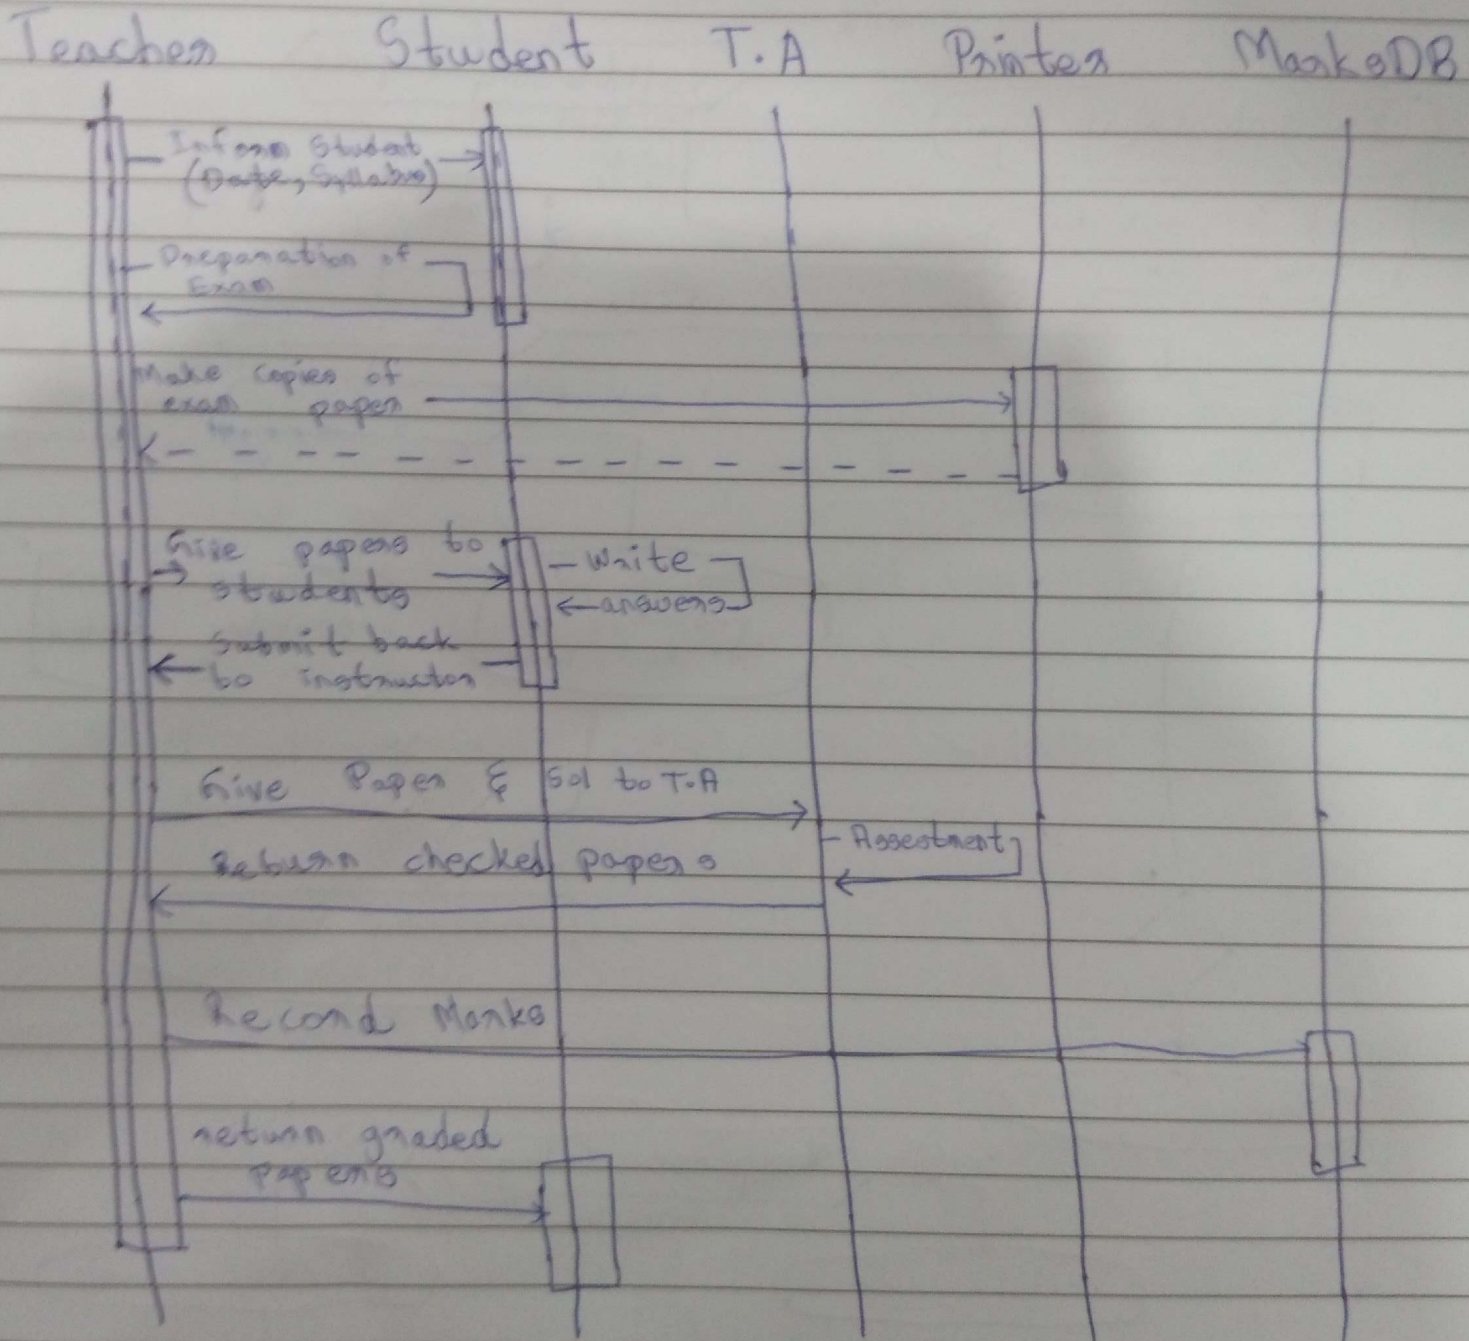 Teacher Student T.A Printer MarksDB
Inform Student
(Date, Syllabus)
Preparation of
Exam
Make copies of
exam paper
Give papers to
students
Write
answers
Submit back
to instructor
Give Paper & Sol to T.A
Assestment
Return checked papers
Record Marks
return graded
papers